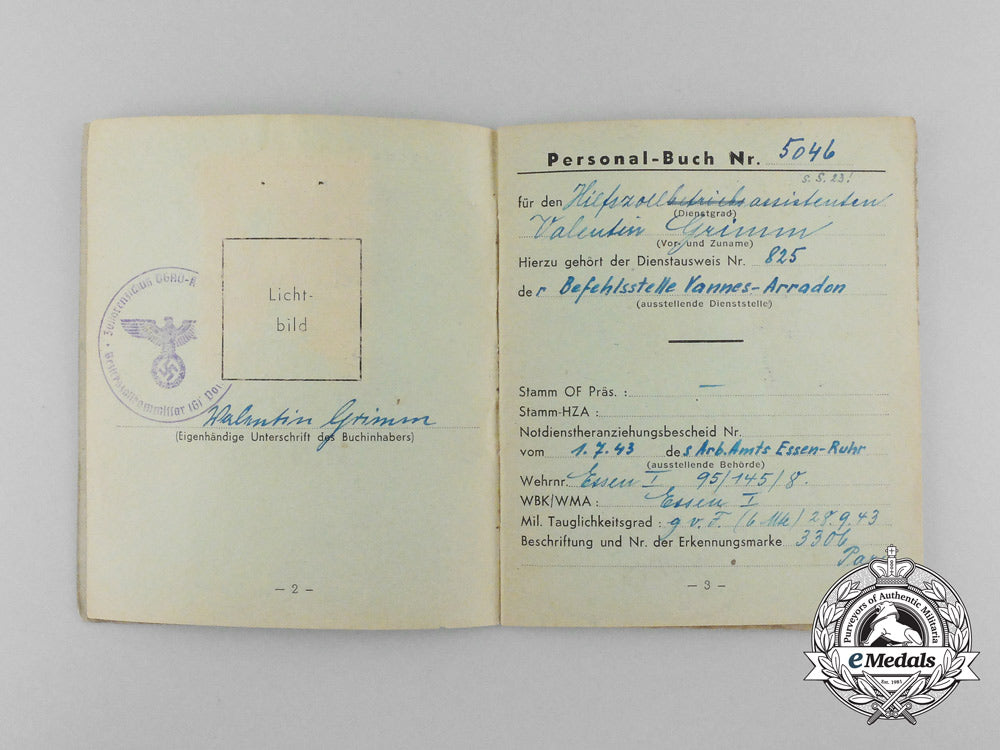 Licht-
bild
Valentin Grimm
(Eigenhändige Unterschrift des Buchinhabers)
– 2 –
Personal-Buch Nr. 5046
s. S. 23!
für den Hilfszollbetriebsassistenten
(Dienstgrad)
Valentin Grimm
(Vor- und Zuname)
Hierzu gehört der Dienstausweis Nr. 825
der Befehlsstelle Vannes-Arradon
(ausstellende Dienststelle)
Stamm OF Präs. : –
Stamm-HZA :
Notdienstheranziehungsbescheid Nr.
vom 1.7.43 des Arb.Amts Essen-Ruhr
(ausstellende Behörde)
Wehrnr. Essen I 95/145/8.
WBK/WMA : Essen I
Mil. Tauglichkeitsgrad : g.v.F. (6 Mte) 28.9.43
Beschriftung und Nr. der Erkennungsmarke 3306
– 3 –
Purveyors of Authentic Militaria
eMedals
Est. 1981